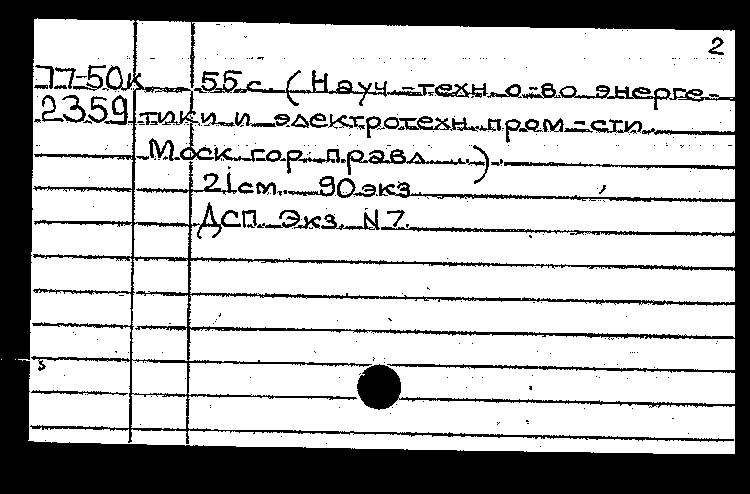 2
77-50к 55с. (Науч.-техн. о-во энерге-
2359 тики и электротехн. пром-сти.
Моск. гор. правл. ...).
21см. 90экз.
ДСП. Экз. N7.